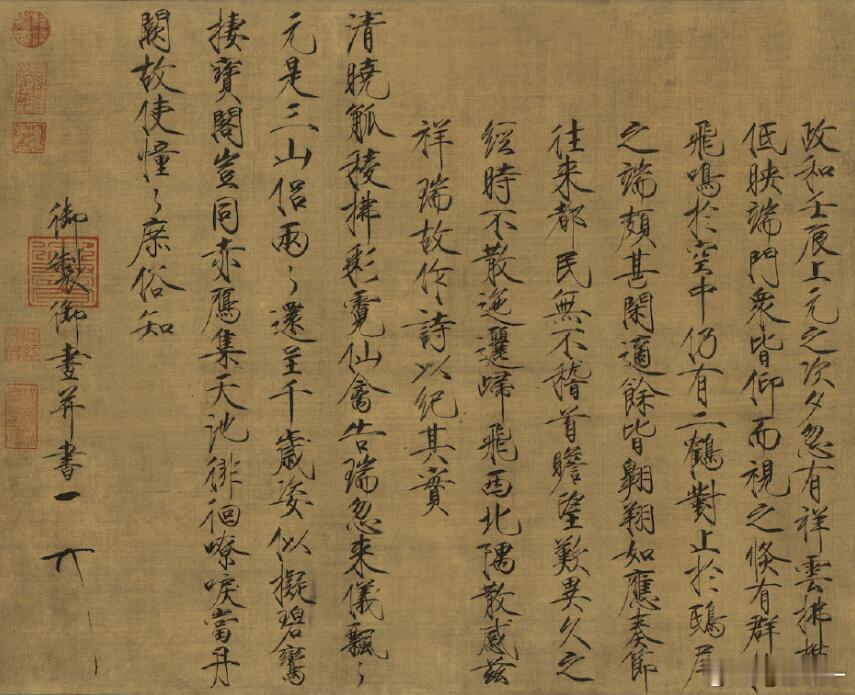 政和壬辰上元之次夕忽有祥雲拂
低映端門衆皆仰而視之倏有群
飛鳴於空中仍有二鶴對止於鴟尾
之端頗甚閑適餘皆翱翔如應奏節
往來都民無不稽首瞻望歎異久之
經時不散迤邐歸飛西北隅散感茲
祥瑞故作詩以紀其實
清曉觚稜拂彩霓仙禽告瑞忽來儀飄〻
元是三山侶兩〻還呈千歲姿似擬碧鸞
棲寶閣豈同赤鴈集天池徘徊嘹唳當丹
闕故使憧〻庶俗知
御製御畫并書